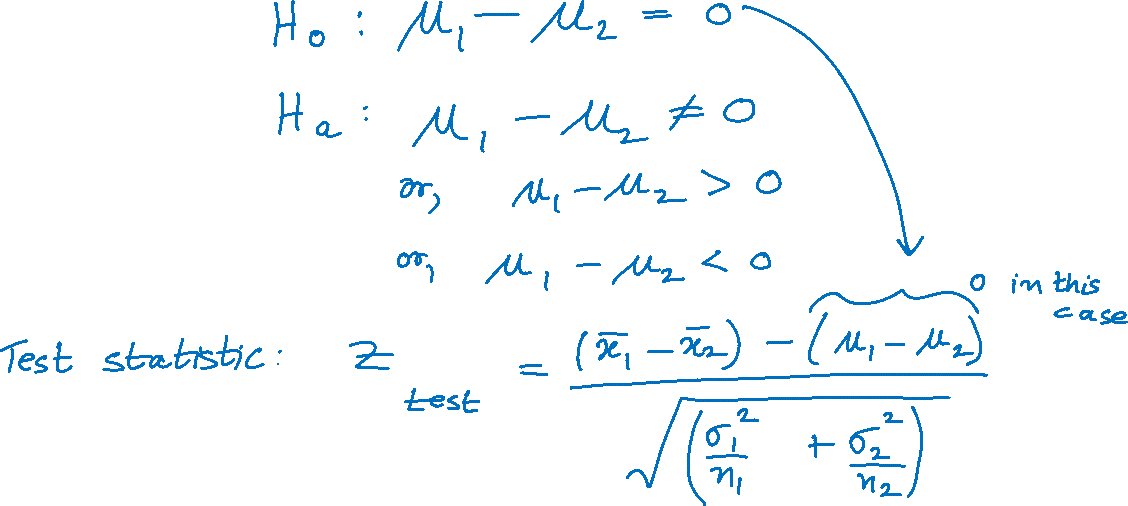 H₀ : μ₁ − μ₂ = 0
Hₐ : μ₁ − μ₂ ≠ 0
or, μ₁ − μ₂ > 0
or, μ₁ − μ₂ < 0
0 in this case
Test statistic: Z_test = ((x̄₁ − x̄₂) − (μ₁ − μ₂)) / √(σ₁²/n₁ + σ₂²/n₂)